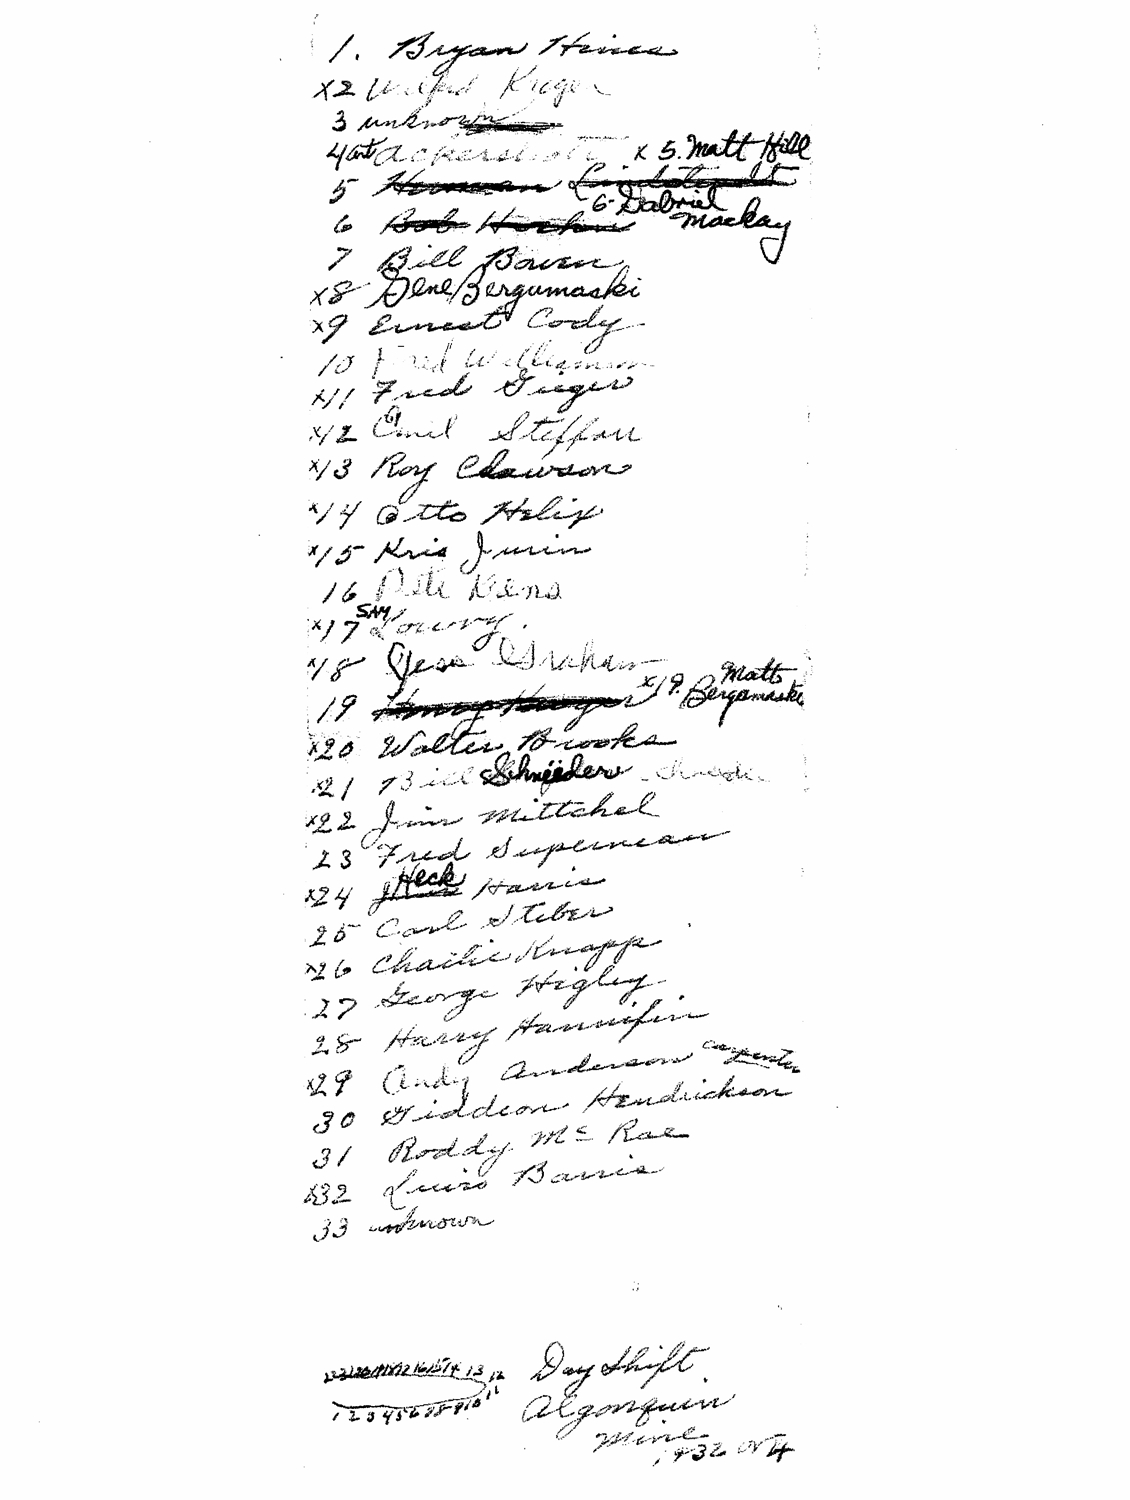 1. Bryan Hines
x2 Wilfred Kruger
3 unknown
4 art Ackersh
x 5. Matt Hill
5 Herman Lindstedt
6. Gabriel Mackay
6 Bob
7 Bill Bowen
x8 Gene Bergumaski
x9 Ernest Cody
10 Fred Williamson
x11 Fred Gieger
x12 Emil Steffan
x13 Roy Clawson
x14 Otto Helix
x15 Kris Jurin
16 Pete Dena
x17 SAM Lowry.
x18 Jess Graham
x19. Matts Bergamaski
19 Henry Kruger
x20 Walter Brooks
x21 Bill Schnieder
x22 Jim Mittchel
23 Fred Superneau
x24 Heck Harris
25 Carl Stiber
x26 Chailie Knapp
27 George Higley
28 Harry Hannifin
x29 Andy Anderson carpenter
30 Giddeon Hendrickson
31 Roddy Mc Rae
x32 Luiro Barris
33 unknown
Day Shift
Algonquin
Mine
1932 or 4
1 2 3 4 5 6 7 8 9 10 11